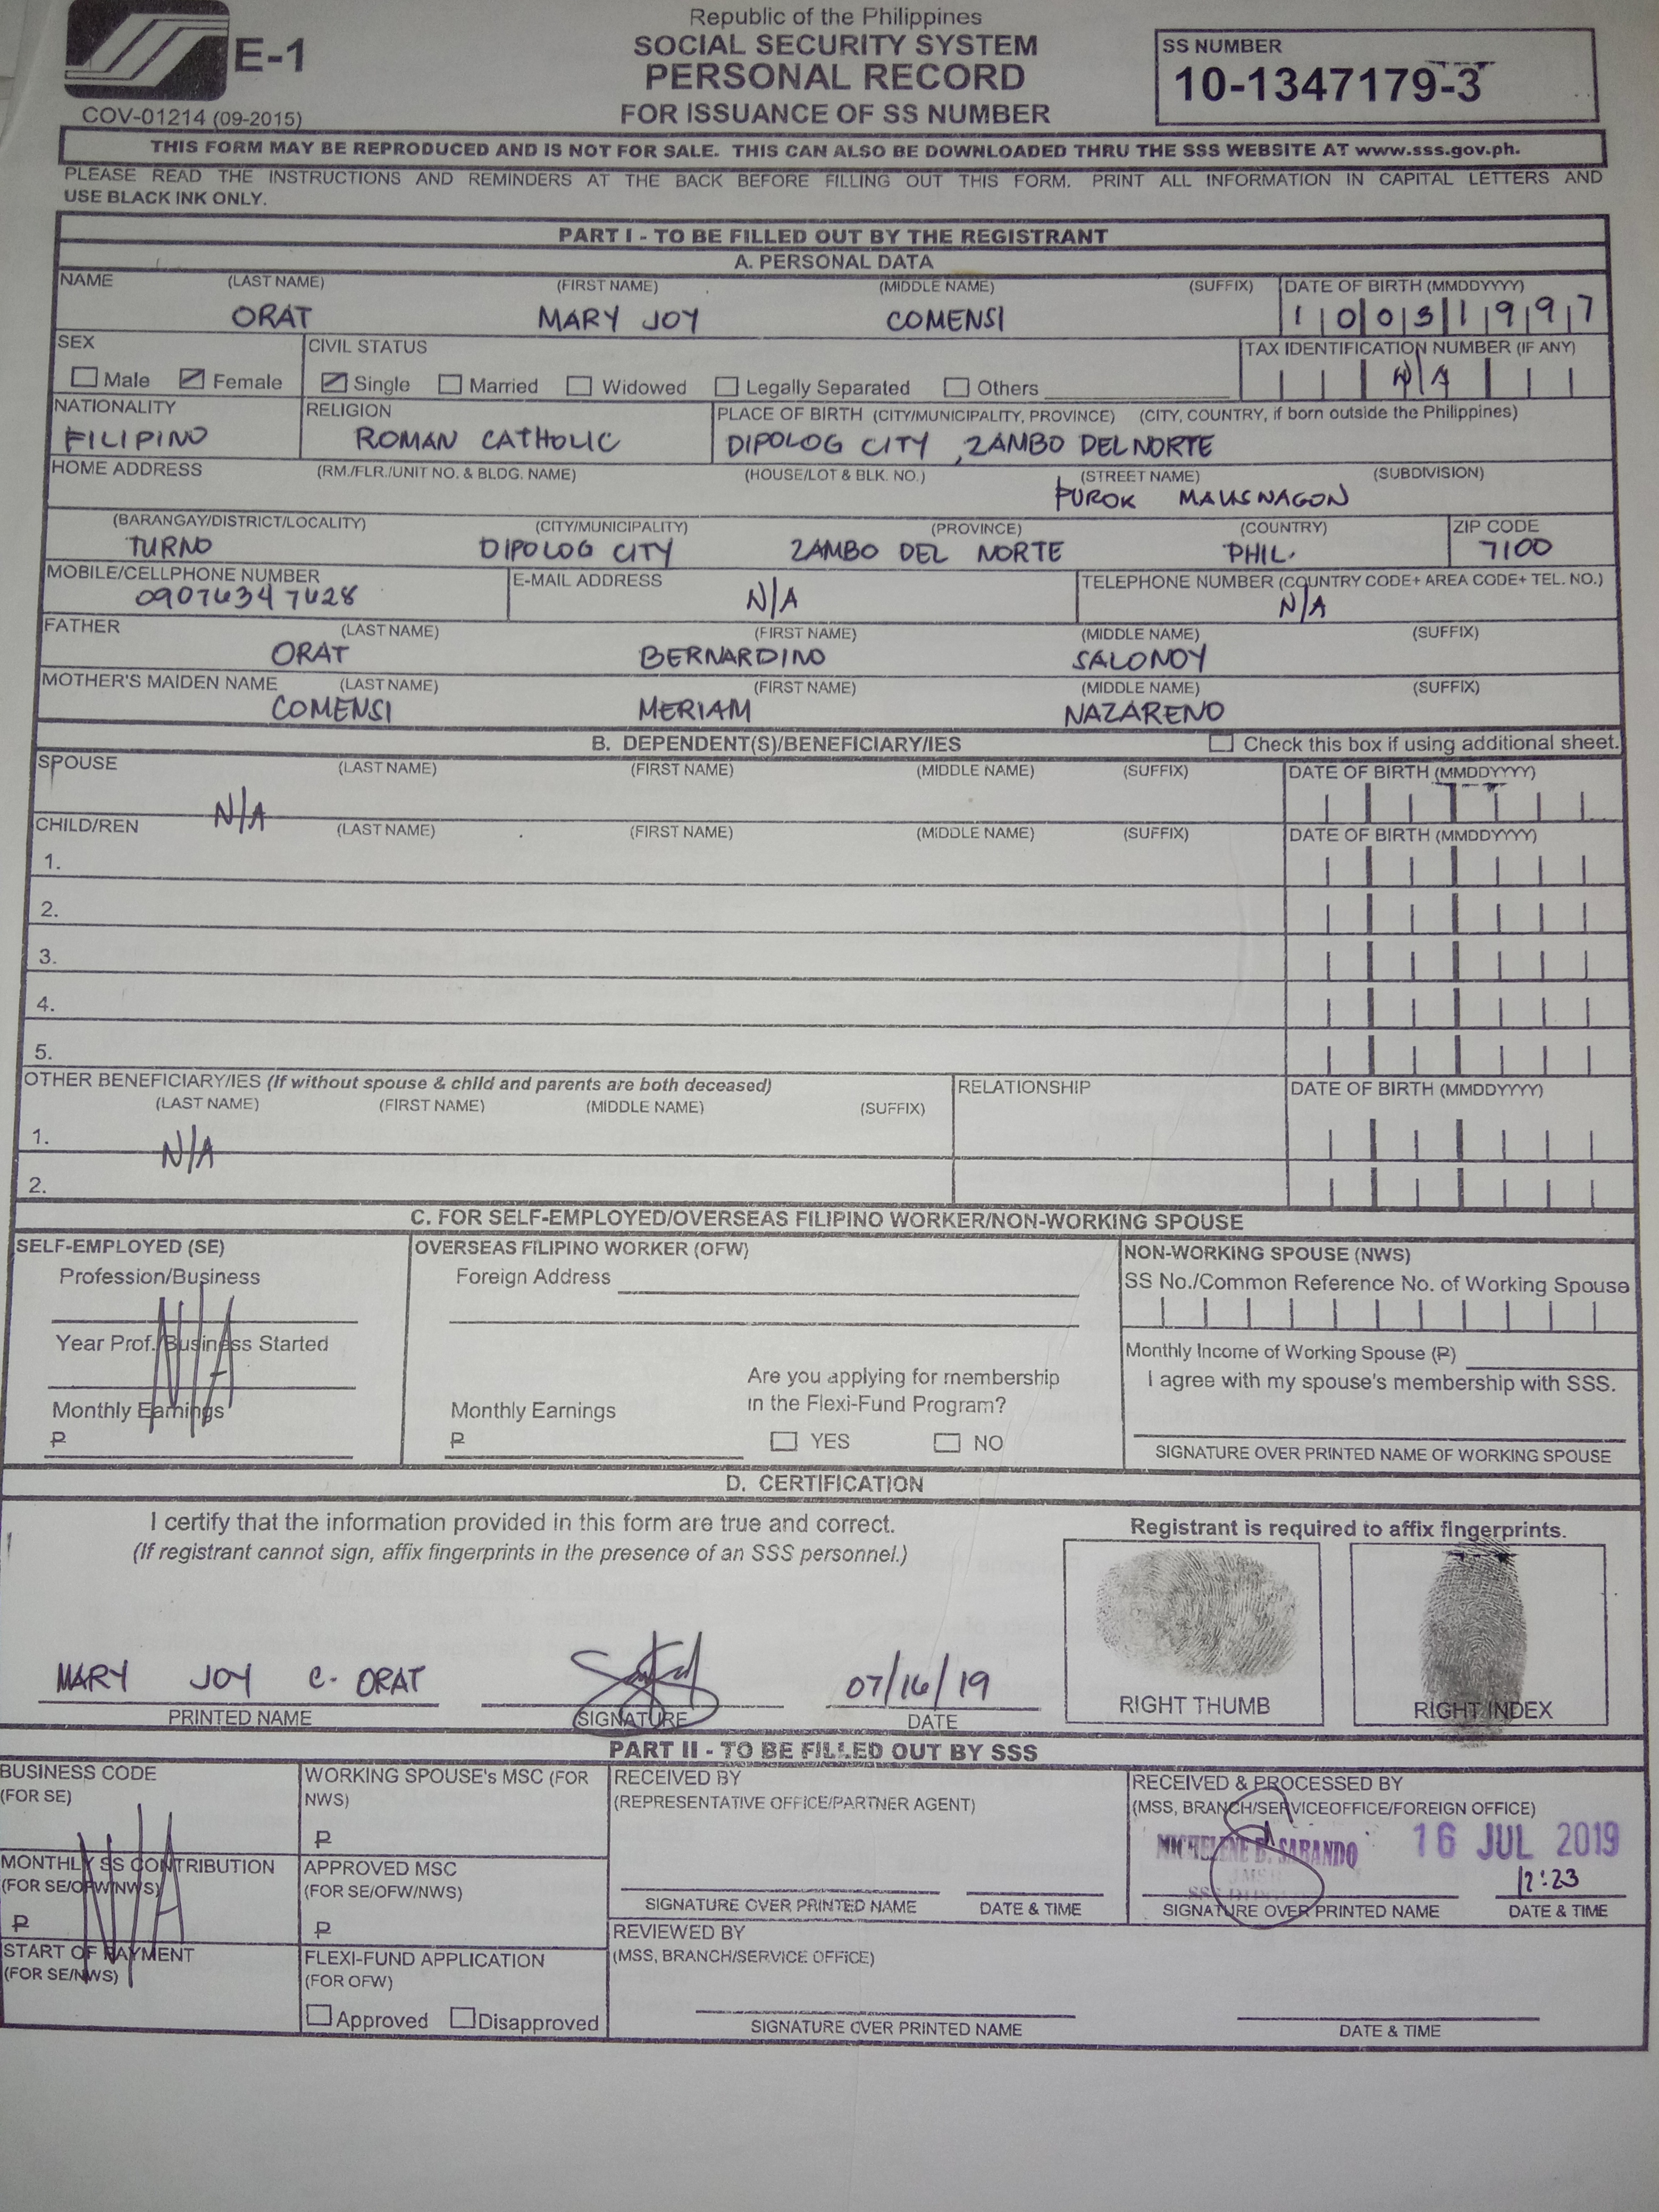 Republic of the Philippines
SOCIAL SECURITY SYSTEM
PERSONAL RECORD
FOR ISSUANCE OF SS NUMBER
E-1
COV-01214 (09-2015)
SS NUMBER
10-1347179-3
THIS FORM MAY BE REPRODUCED AND IS NOT FOR SALE. THIS CAN ALSO BE DOWNLOADED THRU THE SSS WEBSITE AT www.sss.gov.ph.
PLEASE READ THE INSTRUCTIONS AND REMINDERS AT THE BACK BEFORE FILLING OUT THIS FORM. PRINT ALL INFORMATION IN CAPITAL LETTERS AND
USE BLACK INK ONLY.
PART I - TO BE FILLED OUT BY THE REGISTRANT
A. PERSONAL DATA
NAME (LAST NAME) (FIRST NAME) (MIDDLE NAME) (SUFFIX) DATE OF BIRTH (MMDDYYYY)
ORAT MARY JOY COMENSI 10031997
SEX CIVIL STATUS TAX IDENTIFICATION NUMBER (IF ANY)
Male Female Single Married Widowed Legally Separated Others N/A
NATIONALITY RELIGION PLACE OF BIRTH (CITY/MUNICIPALITY, PROVINCE) (CITY, COUNTRY, if born outside the Philippines)
FILIPINO ROMAN CATHOLIC DIPOLOG CITY, ZAMBO DEL NORTE
HOME ADDRESS (RM./FLR./UNIT NO. & BLDG. NAME) (HOUSE/LOT & BLK. NO.) (STREET NAME) (SUBDIVISION)
PUROK
(BARANGAY/DISTRICT/LOCALITY) (CITY/MUNICIPALITY) (PROVINCE) (COUNTRY) ZIP CODE
TURNO DIPOLOG CITY ZAMBO DEL NORTE PHIL. 7100
MOBILE/CELLPHONE NUMBER E-MAIL ADDRESS TELEPHONE NUMBER (COUNTRY CODE+ AREA CODE+ TEL. NO.)
N/A N/A
FATHER (LAST NAME) (FIRST NAME) (MIDDLE NAME) (SUFFIX)
ORAT BERNARDINO SALONOY
MOTHER'S MAIDEN NAME (LAST NAME) (FIRST NAME) (MIDDLE NAME) (SUFFIX)
COMENSI MERIAM NAZARENO
B. DEPENDENT(S)/BENEFICIARY/IES Check this box if using additional sheet.
SPOUSE (LAST NAME) (FIRST NAME) (MIDDLE NAME) (SUFFIX) DATE OF BIRTH (MMDDYYYY)
N/A
CHILD/REN (LAST NAME) (FIRST NAME) (MIDDLE NAME) (SUFFIX) DATE OF BIRTH (MMDDYYYY)
1.
2.
3.
4.
5.
OTHER BENEFICIARY/IES (If without spouse & child and parents are both deceased) RELATIONSHIP DATE OF BIRTH (MMDDYYYY)
(LAST NAME) (FIRST NAME) (MIDDLE NAME) (SUFFIX)
1. N/A
2.
C. FOR SELF-EMPLOYED/OVERSEAS FILIPINO WORKER/NON-WORKING SPOUSE
SELF-EMPLOYED (SE)
Profession/Business
N/A
Year Prof./Business Started
Monthly Earnings
₱
OVERSEAS FILIPINO WORKER (OFW)
Foreign Address
Monthly Earnings
₱
Are you applying for membership
in the Flexi-Fund Program?
YES NO
NON-WORKING SPOUSE (NWS)
SS No./Common Reference No. of Working Spouse
Monthly Income of Working Spouse (₱)
I agree with my spouse's membership with SSS.
SIGNATURE OVER PRINTED NAME OF WORKING SPOUSE
D. CERTIFICATION
I certify that the information provided in this form are true and correct.
(If registrant cannot sign, affix fingerprints in the presence of an SSS personnel.)
Registrant is required to affix fingerprints.
MARY JOY C. ORAT 07/16/19
PRINTED NAME SIGNATURE DATE
RIGHT THUMB RIGHT INDEX
PART II - TO BE FILLED OUT BY SSS
BUSINESS CODE
(FOR SE)
N/A
MONTHLY SS CONTRIBUTION
(FOR SE/OFW/NWS)
₱
START OF PAYMENT
(FOR SE/NWS)
WORKING SPOUSE's MSC (FOR
NWS)
₱
APPROVED MSC
(FOR SE/OFW/NWS)
₱
FLEXI-FUND APPLICATION
(FOR OFW)
Approved Disapproved
RECEIVED BY
(REPRESENTATIVE OFFICE/PARTNER AGENT)
SIGNATURE OVER PRINTED NAME DATE & TIME
RECEIVED & PROCESSED BY
(MSS, BRANCH/SERVICEOFFICE/FOREIGN OFFICE)
MICHELENE D. SABANDO 16 JUL 2019
12:23
SIGNATURE OVER PRINTED NAME DATE & TIME
REVIEWED BY
(MSS, BRANCH/SERVICE OFFICE)
SIGNATURE OVER PRINTED NAME DATE & TIME